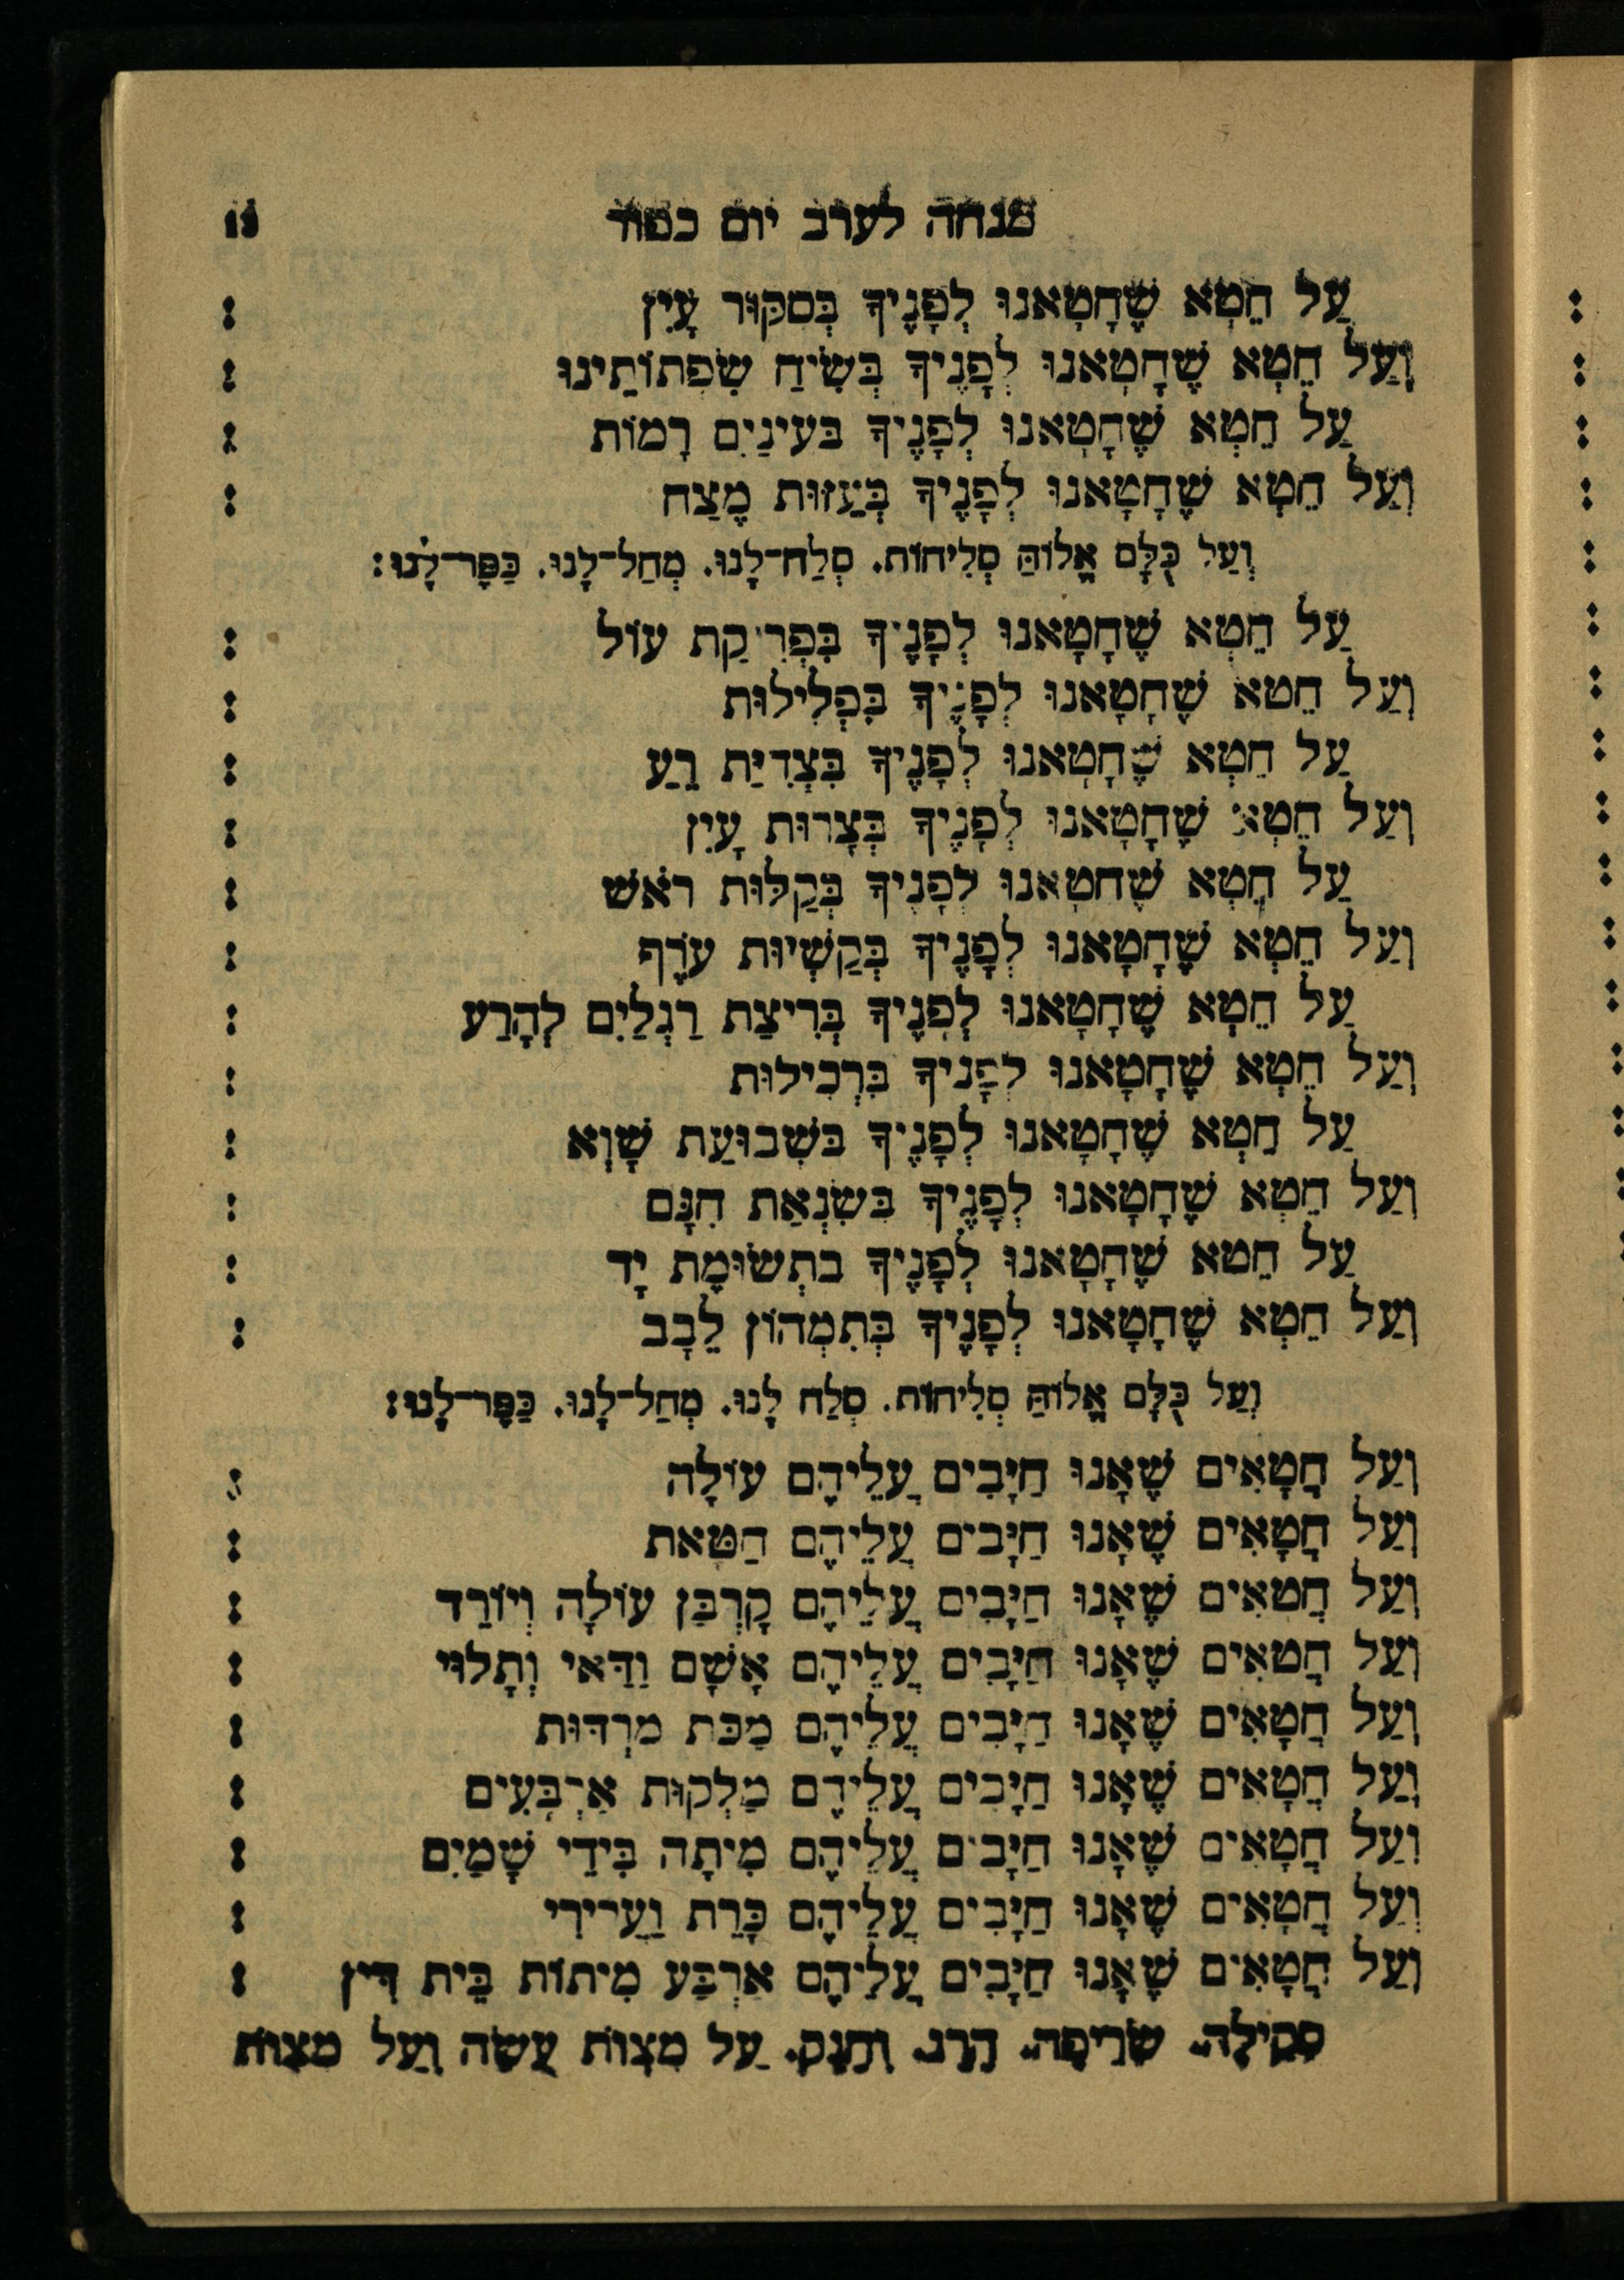 מנחה לערב יום כפור
עַל חֵטְא שֶׁחָטָאנוּ לְפָנֶיךָ בְּסִקּוּר עָיִן :
וְעַל חֵטְא שֶׁחָטָאנוּ לְפָנֶיךָ בְּשִׂיחַ שִׂפְתוֹתֵינוּ :
עַל חֵטְא שֶׁחָטָאנוּ לְפָנֶיךָ בּעינַיִם רָמוֹת :
וְעַל חֵטְא שֶׁחָטָאנוּ לְפָנֶיךָ בְּעַזּוּת מֶצַח :
וְעַל כֻּלָּם אֱלוֹהַּ סְלִיחוֹת. סְלַח־לָנוּ. מְחַל־לָנוּ. כַּפֶּר־לָנוּ:
עַל חֵטְא שֶׁחָטָאנוּ לְפָנֶיךָ בִּפְרִיקַת עוֹל :
וְעַל חֵטא שֶׁחָטָאנוּ לְפָנֶיךָ בִּפְלִילוּת :
עַל חֵטְא שֶׁחָטָאנוּ לְפָנֶיךָ בִּצְדִיַּת רֵעַ :
וְעַל חֵטְא שֶׁחָטָאנוּ לְפָנֶיךָ בְּצָרוּת עָיִן :
עַל חֵטְא שֶׁחטָאנוּ לְפָנֶיךָ בְּקַלּוּת רֹאשׁ :
וְעַל חֵטְא שֶׁחָטָאנוּ לְפָנֶיךָ בְּקַשְׁיוּת עֹרֶף :
עַל חֵטְא שֶׁחָטָאנוּ לְפָנֶיךָ בְּרִיצַת רַגְלַיִם לְהָרַע :
וְעַל חֵטְא שֶׁחָטָאנוּ לְפָניךָ בִּרְכִילוּת :
עַל חֵטְא שֶׁחָטָאנוּ לְפָנֶיךָ בּשְׁבוּעַת שָׁוְא :
וְעַל חֵטְא שֶׁחָטָאנוּ לְפָנֶיךָ בְּשִׂנְאַת חִנָּם :
עַל חֵטא שֶׁחָטָאנוּ לְפָנֶיךָ בתְשׂוּמֶת יָד :
וְעַל חֵטְא שֶׁחָטָאנוּ לְפָנֶיךָ בְּתִמְהוֹן לֵבָב :
וְעַל כֻּלָּם אֱלוֹהַּ סְלִיחוֹת. סְלַח לָנוּ. מְחַל־לָנוּ. כַּפֶּר־לָנוּ:
וְעַל חֲטָאִים שֶׁאָנוּ חַיָּבִים עֲלֵיהֶם עוֹלָה :
וְעַל חֲטָאִים שֶׁאָנוּ חַיָּבִים עֲלֵיהֶם חַטָּאת :
וְעַל חֲטאִים שֶׁאָנוּ חַיָּבִים עֲלֵיהֶם קָרְבַּן עוֹלָה וְיוֹרֵד :
וְעַל חֲטאִים שֶׁאָנוּ חַיָּבִים עֲלֵיהֶם אָשָׁם וַדַּאי וְתָלוּי :
וְעַל חֲטָאִים שֶׁאָנוּ חַיָּבִים עֲלֵיהֶם מַכּת מרְדּוּת :
וְעַל חֲטָאִים שֶׁאָנוּ חַיָּבִים עֲלֵיהֶם מַלְקוּת אַרְבָּעִים :
וְעַל חֲטָאִים שֶׁאָנוּ חַיָּבִים עֲלֵיהֶם מִיתָה בִּידֵי שָׁמַיִם :
וְעַל חֲטָאִים שֶׁאָנוּ חַיָּבִים עֲלֵיהֶם כָּרֵת וַעֲרִירִי :
וְעַל חֲטָאִים שֶׁאָנוּ חַיָּבִים עֲלֵיהֶם אַרְבַּע מִיתוֹת בֵּית דִּין :
סְקִילָה. שְׂרֵיפָה. הֶרֶג. וְחֶנֶק. עַל מִצְוֹת עֲשֵׂה וְעַל מִצְוֹת